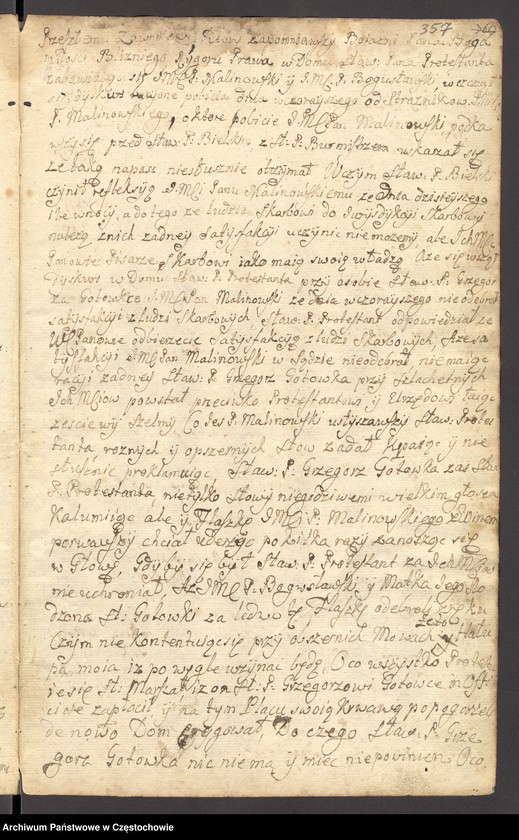 357
Przeszłemu Zawodzą, Który zapomniawszy Bojazni Pana Boga
miłości Blizniego Rygoru Prawa w Domu Sław: Pana Protestanta
zabawiającego się JMci P. Malinowski y J.M.C. P. Bogusławski, wczął
się dyskurs względem pobicia dnia wczorayszego od Strażnikow JMci
P. Malinowskiego, o ktore pobicie JMCi Pan Malinowski podka
wszy się przed Sław: P. Bielskim z St: P. Burmistrzem uskarzał się
ze taką napaść niesłusznie otrzymał Wczym Sław: P. Bielski
czynił reflekssyią J.MCi Panu Malinowskiemu ze Dnia dzisieyszego
iest a dotego ze ludzie Skarbowi do Juryzdykcyi Skarbowy
nalezą z nich zadney Satysfakcyi uczynic niemożemy ale Ich MCi
Panowie Pisarze Skarbowi iako maią swoią władzą. Aze się wszczął
Dyskurs w Domu Sław: P. Protestanta przy osobie Sław: P. Grzegor
za Gotowki ze J.MCi Pan Malinowski ze dnia wczorayszego nie odebrał
Satysfakcyi z ludzi Skarbowych, Sław: P. Protestant odpowiedział ze
WCPanowie odbierzecie Satysfakcyą z ludzi Skarbowych, Aze sa
tysfakcyi JMCi Pan Malinowski w Sądzie nieodebrał, niemaiąc
racyi zadney Sław: P. Grzegorz Gotowka przy Szlachetnych
Ich MCiow powstał przeciwko Protestantowi y Urzędowi
zescie wy Szelmy Co Jes P. Malinowski usłyszawszy Sław: Protes
tanta roznych y opszernych Słow zadał y nie
słusznie proklamuiąc Sław: P. Grzegorz Gotowka zas Sław:
P. Protestanta, nietylko Słowy niegodziwemi wielkim głosem
Kalumniąc ale y Flaszkę JMCi P. Malinowskiego z Winem
porwawszy chciał uderzyc po kilka razy zanosząc się
w Głowę, gdyby się był Sław: P. Protestant za Ich MCiow
nie uchronił, Aze JMC P. Bogusławski y Matka Jego Ro
dzona St: Gotowki za ledwo tę Flaszkę odebrali z ręku
Czym nie kontentuiąc się przy rozlicznich Mowach
pa, moia iz po węgle wzynac będę, O co wszystko Protestu
ie się St: Marszał iz on St: P. Grzegorzowi Gotowce
ciole zapłacił y na tym Placu swoią krwawą popogorzel
de nowo Dom erygował, Do czego Sław: P. Grze
gorz Gotowka nic nie ma y miec niepowinien O co
Archiwum Państwowe w Częstochowie